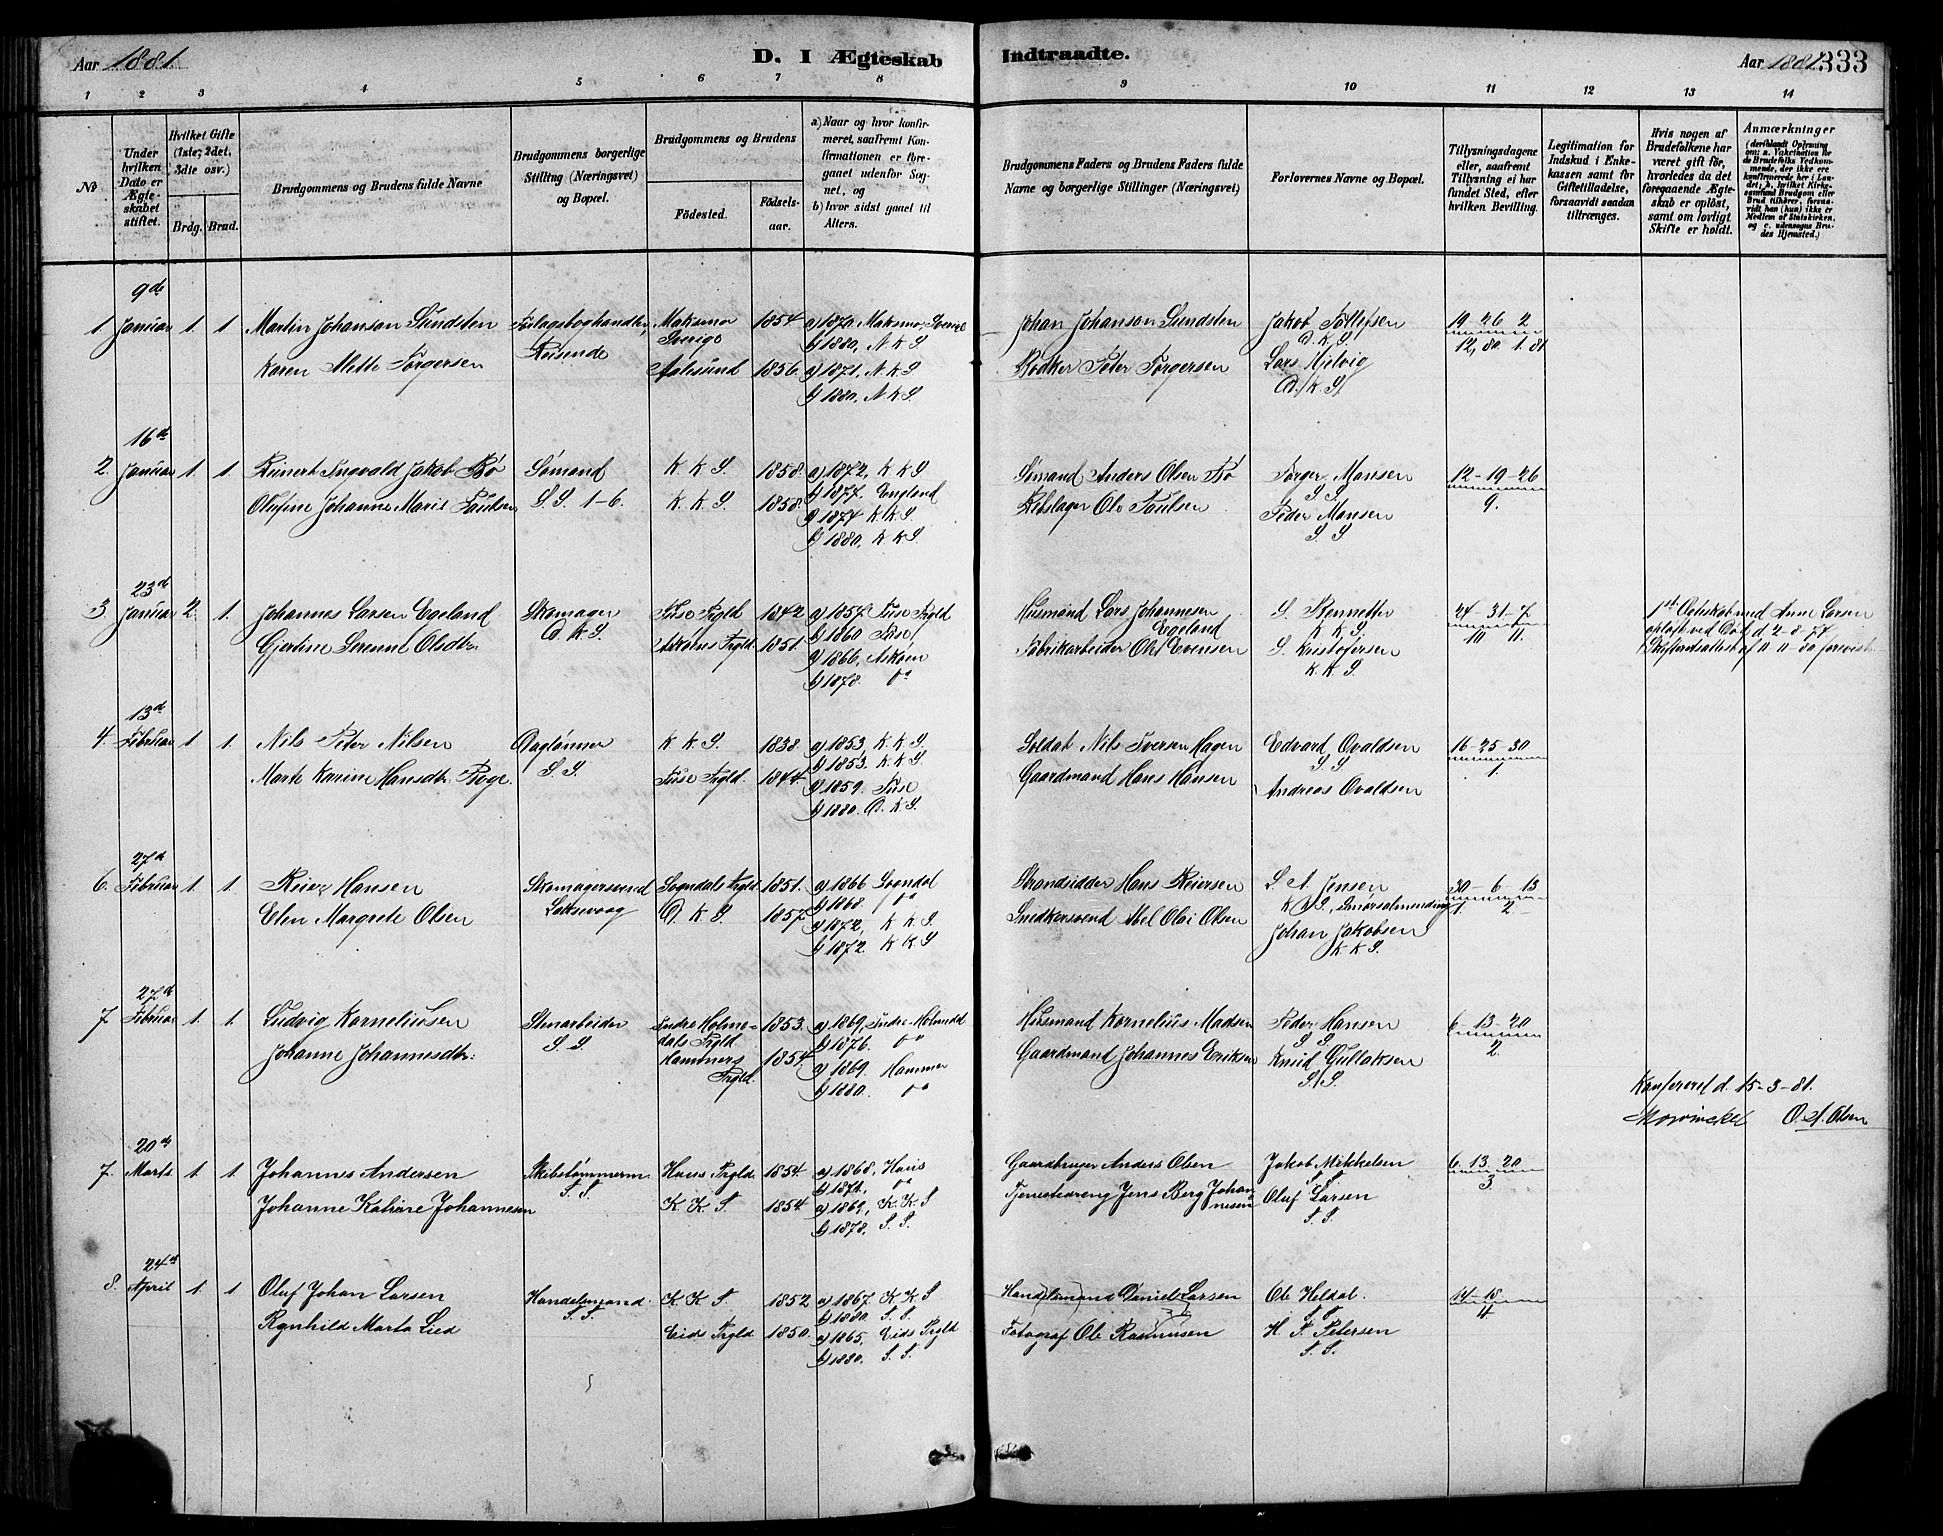 Aar 1881.
D. I Ægteskab Indtraadte.
Aar 1881. 333
1 2 3 4 5 6 7 8 9 10 11 12 13 14
No
Under hvilken Dato er Ægteskabet stiftet.
Hvilket Gifte (1ste, 2det, 3die osv.)
Brdg. Brud.
Brudgommens og Brudens fulde Navne
Brudgommens borgerlige Stilling (Næringsvei) og Bopæl.
Brudgommens og Brudens
Födested.
Födselsaar.
a) Naar og hvor konfirmeret, saafremt Konfirmationen er foregaaet udenför Sognet, og
b) hvor sidst gaaet til Alters.
Brudgommens Faders og Brudens Faders fulde Navne og borgerlige Stillinger (Næringsvei)
Forlovernes Navne og Bopæl.
Tillysningsdagene eller, saafremt Tillysning ei har fundet Sted, efter hvilken Bevilling.
Legitimation for Indskud i Enkekassen samt for Giftetilladelse, forsaavidt saadan tiltrænges.
Hvis nogen af Brudefolkene har været gift för, hvorledes da det foregaaende Ægteskab er oplöst, samt om lovligt Skifte er holdt.
Anmærkninger
9de
1 Januar 1. 1 Martin Johanson Sundsten Forlagsboghandler, 1854 a) 1870. Johan Johanson Sundsten Jakob Tollefsen 19-26 2
Sverige b) 1880, N K S D. K. S. 12, 80. 1. 81
Karen Mette Torgersen Reisende Aalesund 1856. a) 1871, N. K S Bødker Peter Torgersen Lars Hjelvig
b) 1880, N K S. D. K. S.
16de
2. Januar 1. 1. Reinert Ingvald Jakob Bø Sømand K K S. 1858. a) 1872, K K S Sømand Anders Olsen Bø Torger Monsen 12-19-26
b) 1877. England S S 9.
Olufine Johanne Marie Paulsen S. S. 1-6. K. K S. 1858. a) 1874 K. K S. Rebslager Ole Paulsen Peder Monsen
b) 1880, K K S S S
23de
3 Januar 2. 1. Johannes Larsen Egeland Skomager Fuse Prgld 1842 a) 1857. Fuse Prgld Husmand Lars Johannesen S. Bennetter 24-31-7
D. K S. b) 1860 Fuse Egeland K K S. 10 11.
Gjertine Serenne Olsdtr. Askøens Prgld. 1851. a) 1866, Askøen Fabrikarbeider Ole Evensen S. Kristofersen
b) 1878. do K. K S.
1st Ægteskab med Anne Larsen
opløst ved Død d. 2-8-77
Skifteretsattest af 11-11-80 forevist
13de
4. Februar 1 1. Nils Peter Nilsen Daglønner K K S. 1838 a) 1853, K. K S. Soldat Nils Iversen Hagen Edvard Ovaldsen 16-25-30
S. S. b) 1853. K K S. S S 1.
Marte Karine Hansdtr. Boge. Fuse Prgld. 1844. a) 1859. Fuse Gaardmand Hans Hansen Andreas Ovaldsen
b) 1880. D. K S.
27de
6. Februar 1. 1. Reier Hansen Skomagersvend Sogndals Prgld 1851. a) 1866 Sogndal Strandsidder Hans Reiersen L A Jensen 30-6-13
Laksevaag b) 1868. do K K S, Smørsalmending 1. 2.
Elen Margrete Olsen D. K S. 1857. a) 1872, K K S. Snedkersvend Abel Olai Olsen Johan Jakobsen
b) 1872. K K S K. K S.
27de
7. Februar 1. 1. Ludvig Korneliusen Stenarbeider Indre Holmedals Prgld 1853. a) 1869, Indre-Holmedal Husmand Kornelius Madsen Peder Hansen 6-13-20
S. S. b) 1876. do S S 2.
Johanne Johannesdtr. Hammers Prgld. 1854. a) 1869. Hammer Gaardmand Johannes Eriksen Knud Gullaksen
b) 1880. do S. S.
Konfereret d. 15-3-81.
Mowinckel O. A. Olsen
20de
7. Marts 1. 1. Johannes Andersen Skibstømmerm. Haus Prgld. 1854. a) 1868, Haus Gaardbruger Anders Olsen Jakob Mikkelsen 6. 13. 20
S. S. b) 1871. do S. S. 3.
Johanne Katrine Johannesen K. K. S. 1854. a) 1869, K. K. S Tjenestedreng Jens Berg Johannesen Oluf Larsen
b) 1878. S. S. S. S.
24de
8. April 1. 1 Oluf Johan Larsen Handelsmand. K. K S. 1852 a) 1867. K K S Handelsmand Daniel Larsen Ole Heldal. 14-18.
S. S. b) 1880. S. S. S. S. 4
Ragnhild Marta Lied Eids Prgld 1850. a) 1865. Eids Prgld Fotograf Ole Rasmusen H. P. Petersen
b) 1880. S. S. S. S.